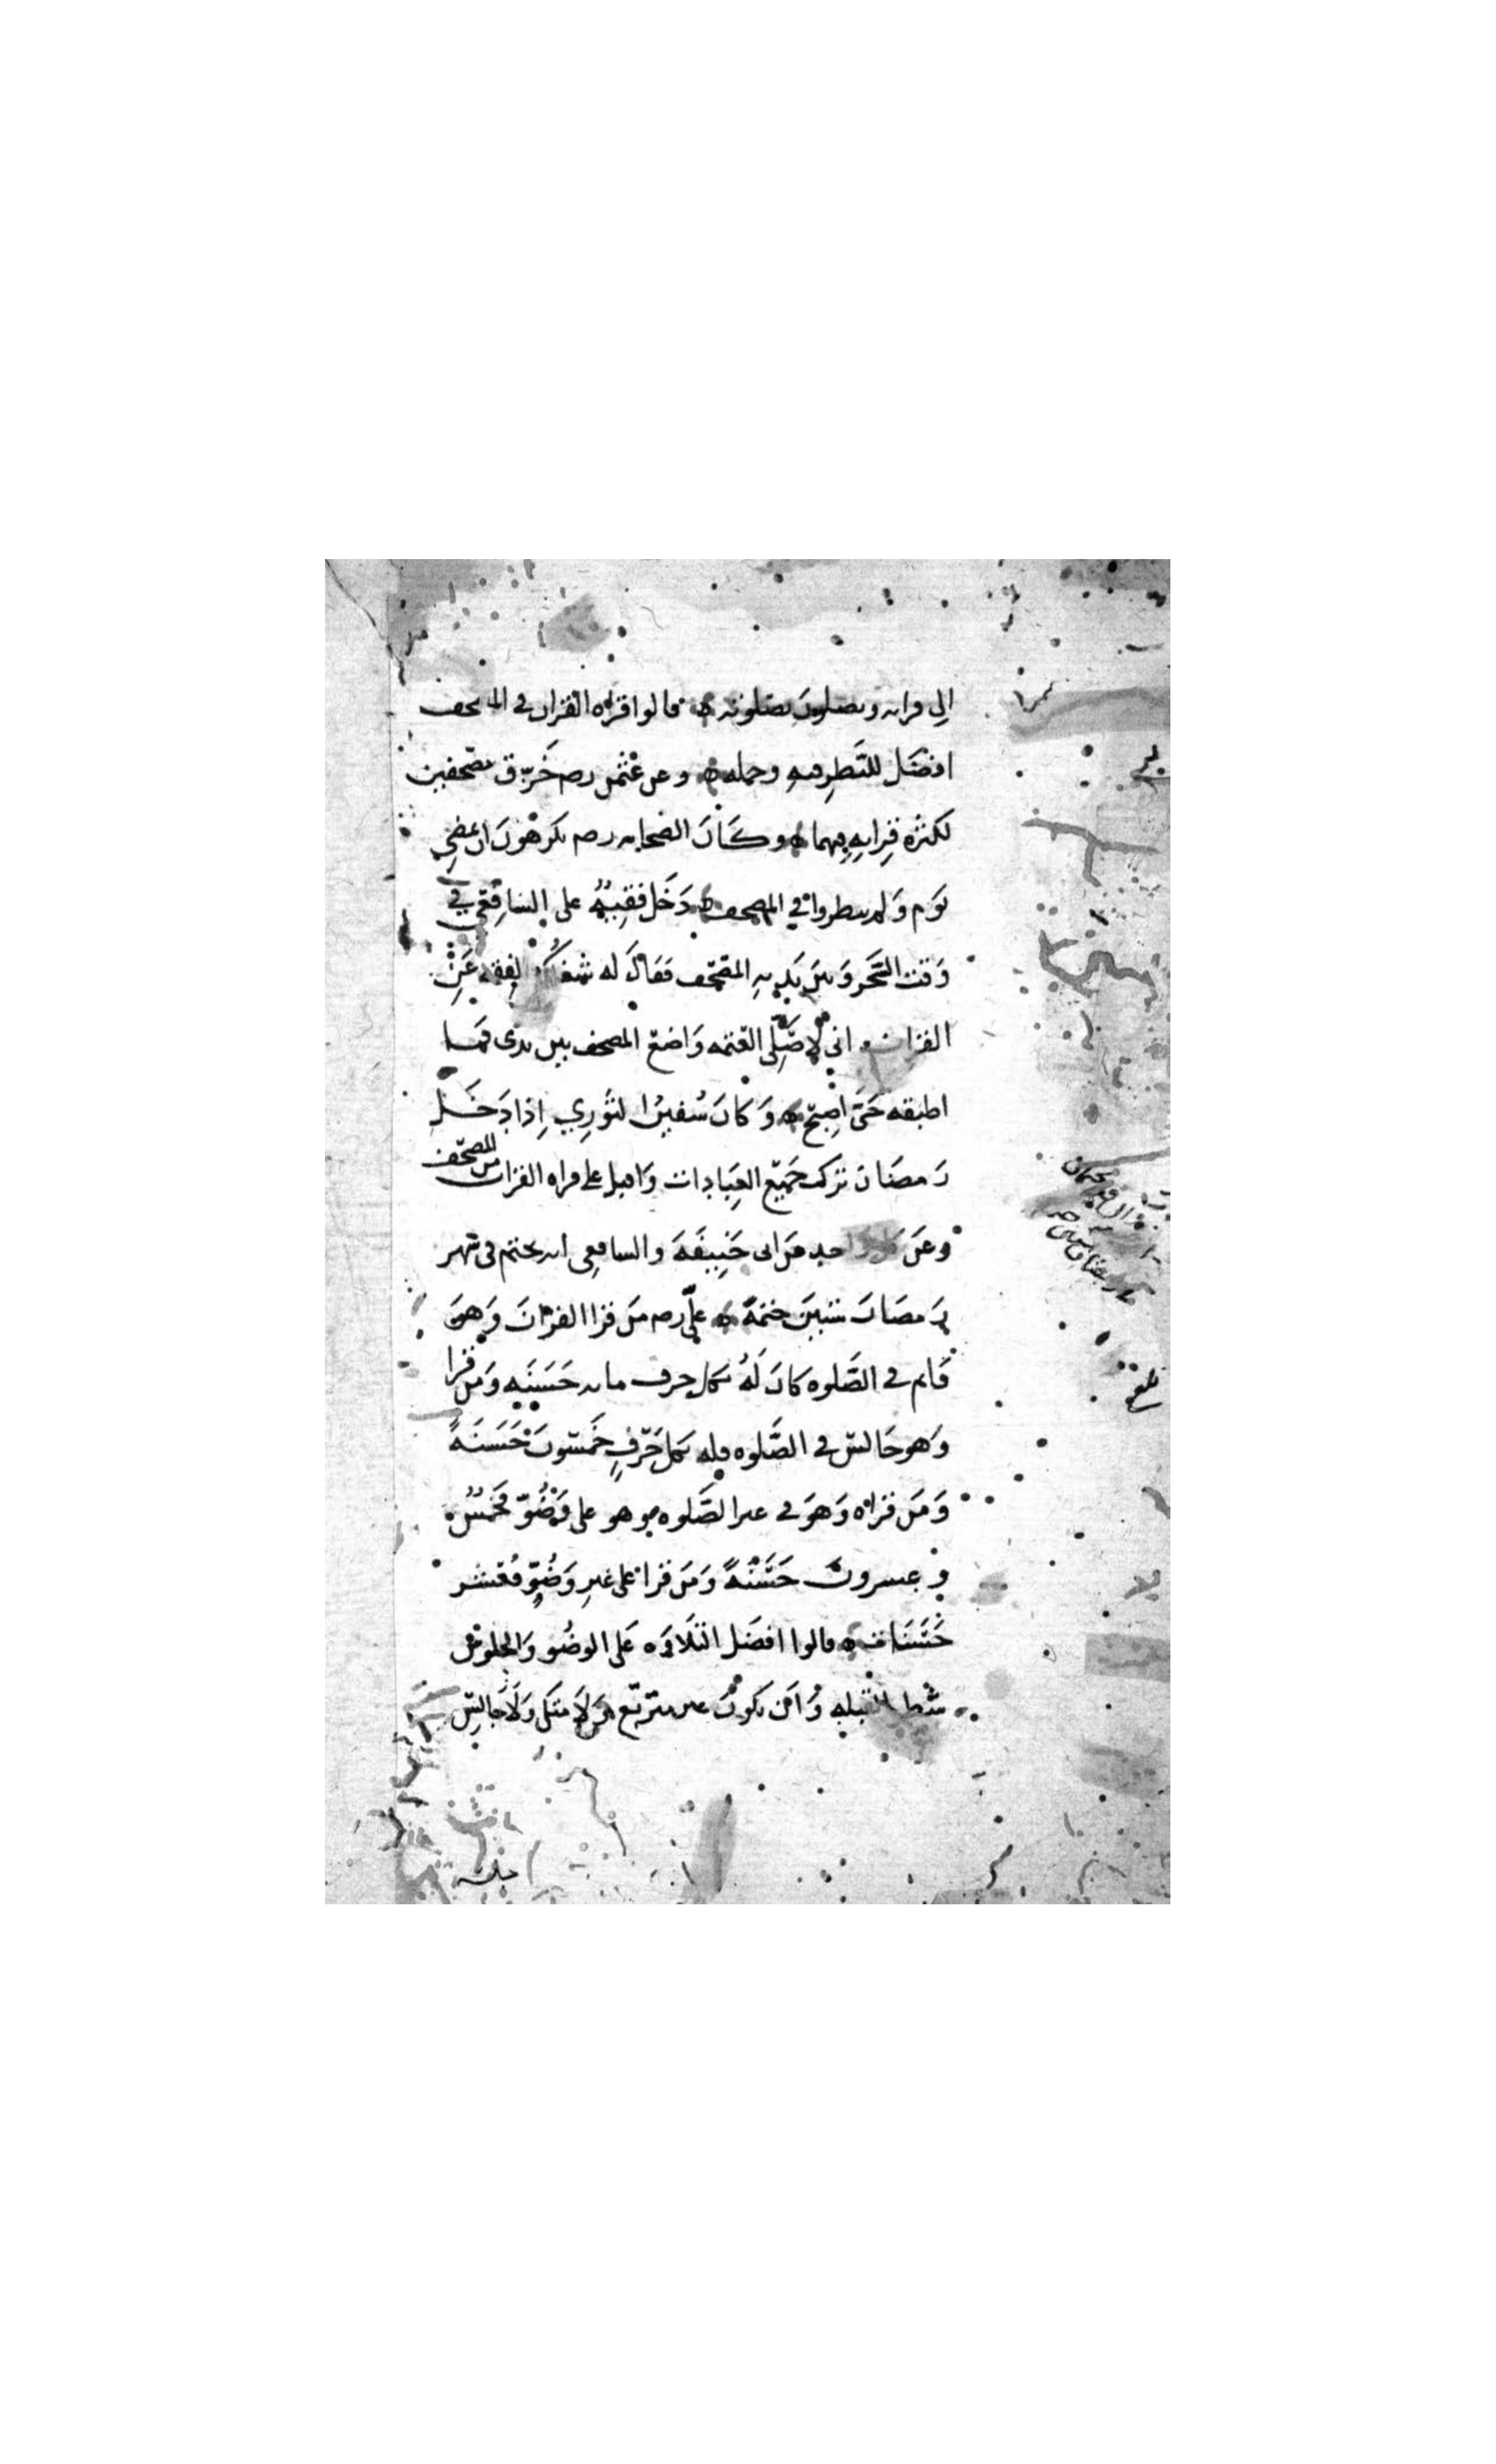 الي قرانه ويصلون بصلوته قالوا قراه القران في المصحف
افضل للنظر فيه وحمله وعن عثمن رصه خرق مصحفين
لكثره قرايه فيهما وكان الصحابه رصه يكرهون ان يمضي
يوم ولم ينظروا في المصحف دخل فقيه على الشافعي في
وقت السحر وبين يديه المصحف فقال له شغلكم الفقه عن
القران اني لاصلي العتمه واضع المصحف بين يدي فما
اطبقه حتى اصبح وكان سفين الثوري اذا دخل
رمضان ترك جميع العبادات واقبل على قراه القران من المصحف
وعن كل واحد من ابي حنيفه والشافعي انه يختم في شهر
رمضان ستين ختمة علي رصه من قرا القران وهو
قايم في الصلوه كان له بكل حرف مايه حسنه ومن قرا
وهو جالس في الصلوه فله بكل حرف خمسون حسنة
ومن قراه وهو في غير الصلوه وهو على وضو فخمس
وعشرون حسنة ومن قرا على غير وضو فعشر
حسنات قالوا افضل التلاوه على الوضو والجلوس
شطر القبله وان يكون غير متربع ولا متكى ولا جالس